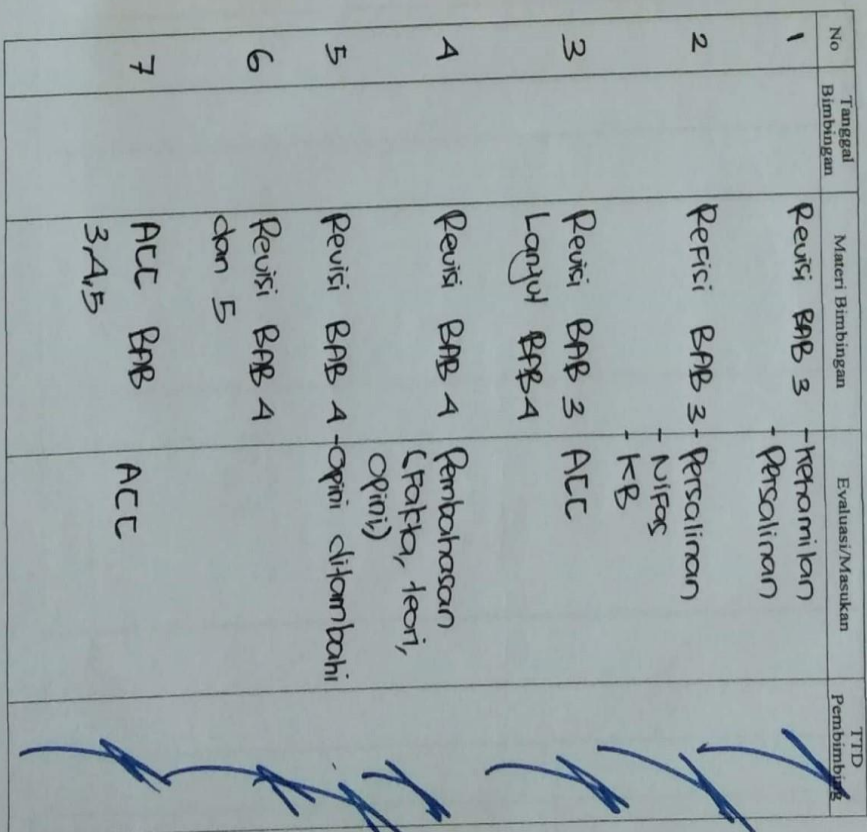 No
Tanggal
Bimbingan
Materi Bimbingan
Evaluasi/Masukan
TTD
Pembimbing
1
Revisi BAB 3
- Kehamilan
- Persalinan
2
Refisi BAB 3
- Persalinan
- Nifas
- KB
3
Revisi BAB 3
Lanjut BAB 4
ACC
4
Revisi BAB 4
Pembahasan
(Fakta, teori,
opini)
5
Revisi BAB 4
- Opini ditambahi
6
Revisi BAB 4
dan 5
7
ACC BAB
3,4,5
ACC